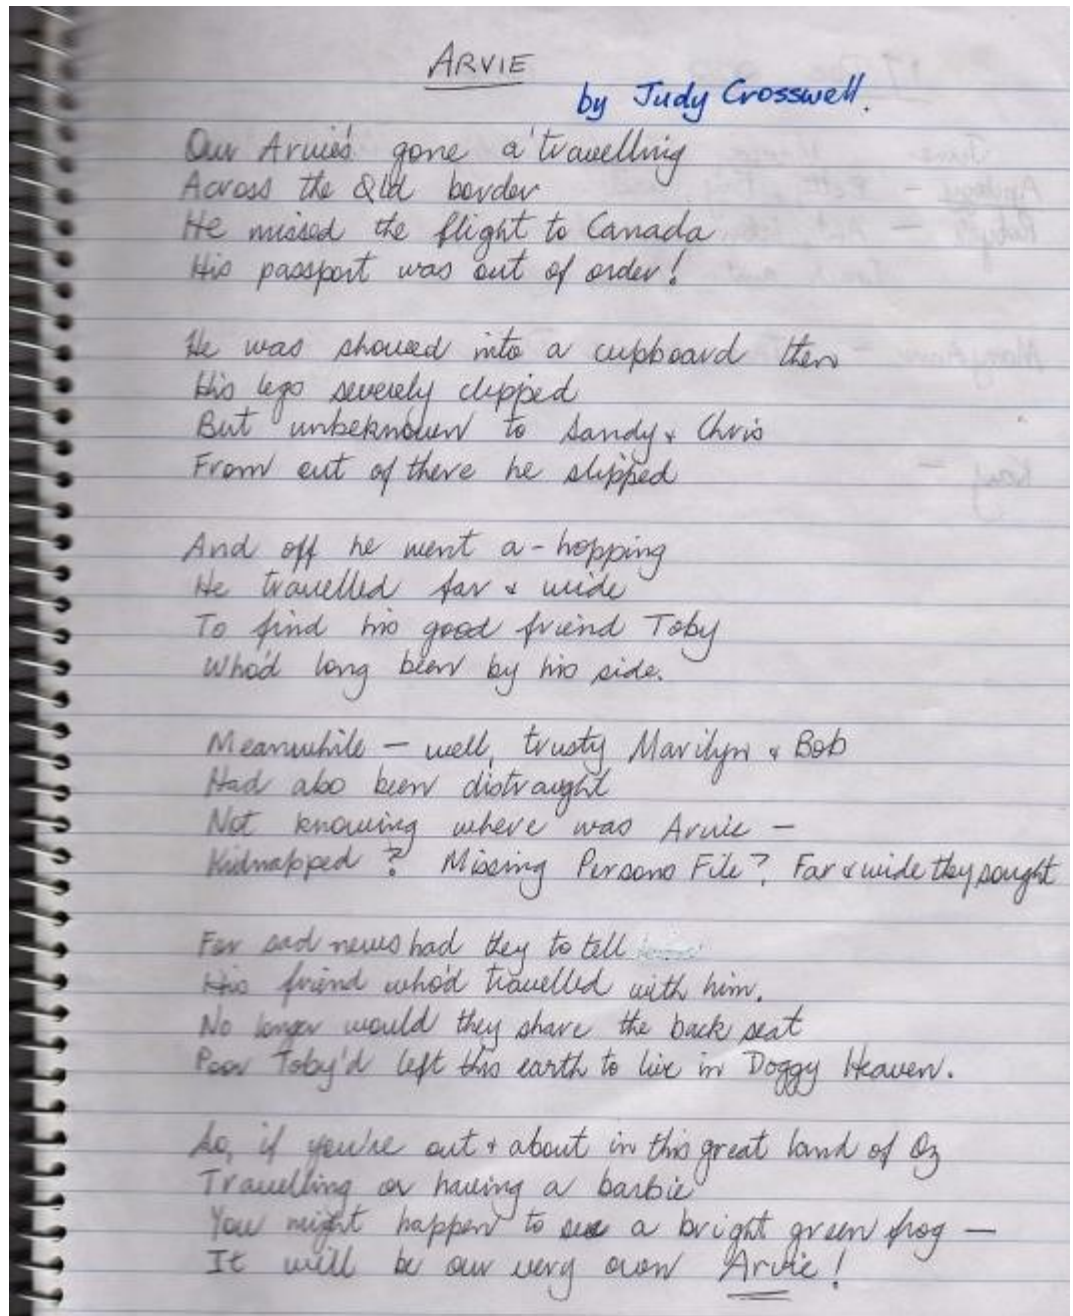 ARVIE
by Judy Crosswell.
Our Arvie's gone a'travelling
Across the Qld border
He missed the flight to Canada
His passport was out of order!
He was shoved into a cupboard then
His legs severely clipped
But unbeknown to Sandy & Chris
From out of there he slipped
And off he went a-hopping
He travelled far & wide
To find his good friend Toby
Who'd long been by his side.
Meanwhile - well, trusty Marilyn & Bob
Had also been distraught
Not knowing where was Arvie -
Kidnapped? Missing Persons File? Far & wide they sought
For sad news had they to tell
His friend who'd travelled with him.
No longer would they share the back seat
Poor Toby'd left this earth to live in Doggy Heaven.
So, if you're out & about in this great land of Oz
Travelling or having a barbie
You might happen to see a bright green frog -
It will be our very own Arvie!